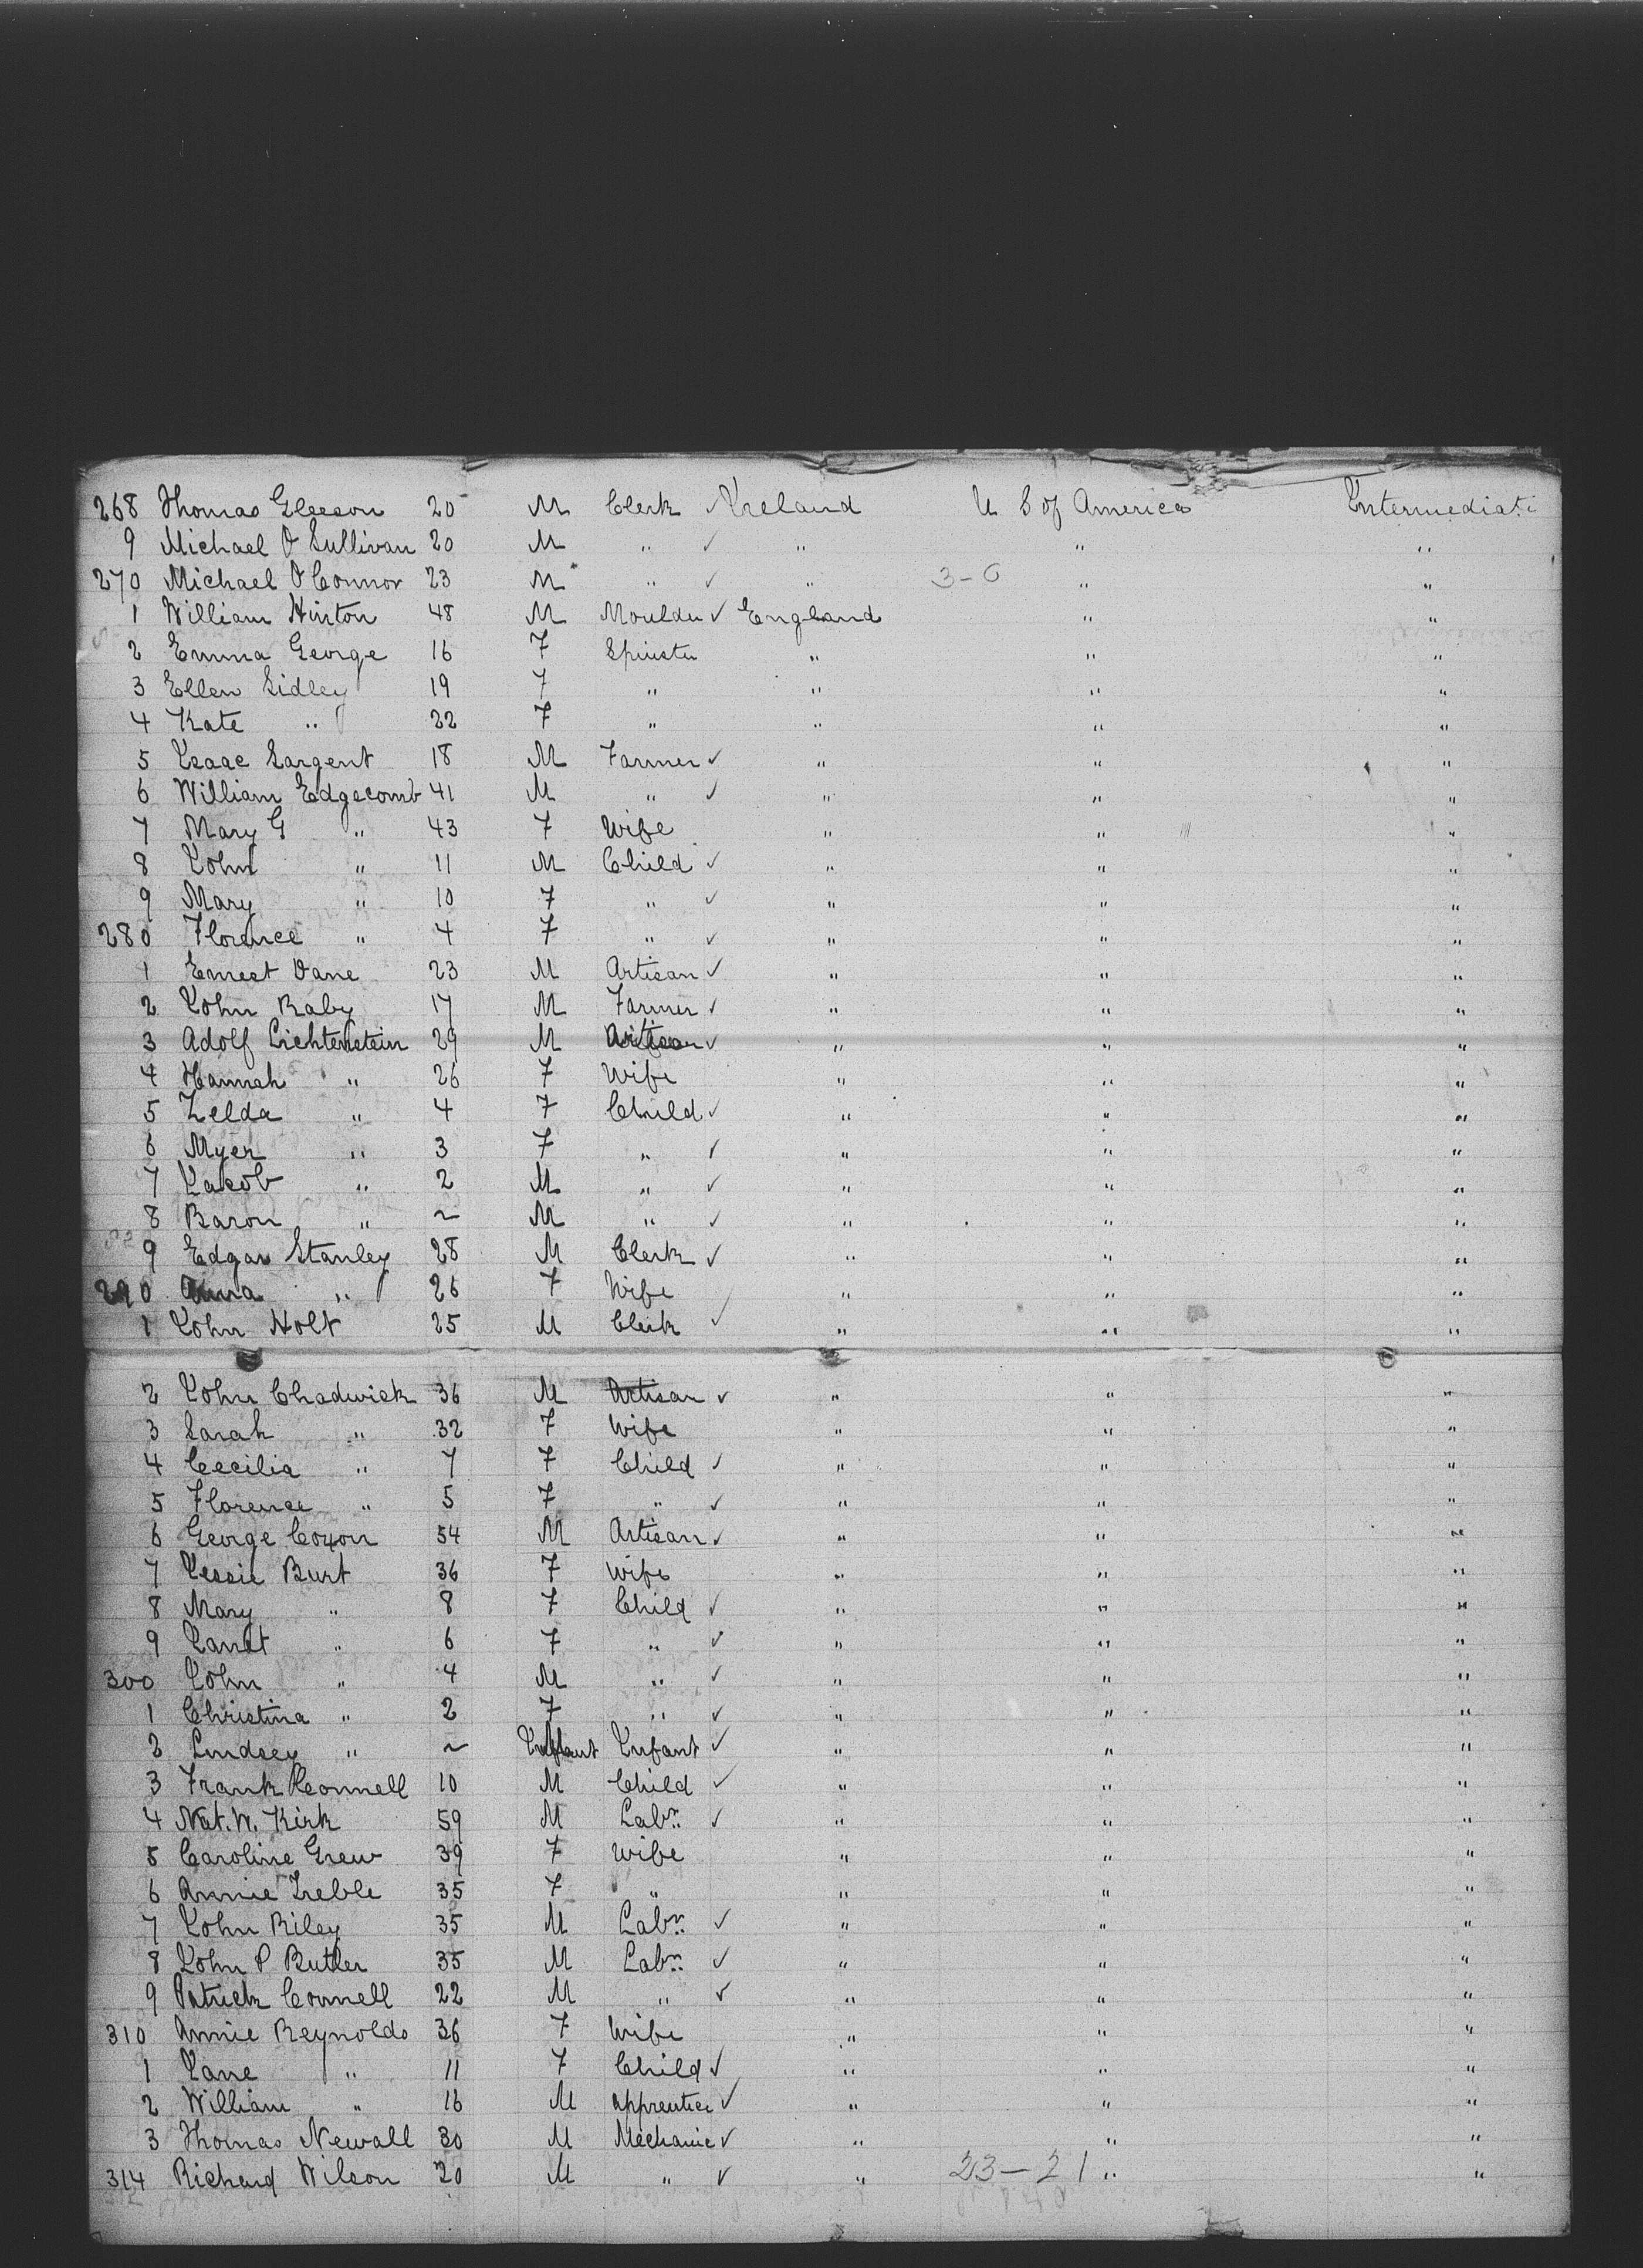 268 Thomas Gleeson 20 M Clerk ✓ Ireland U S of America Intermediate
9 Michael O Sullivan 20 M " ✓ " " "
270 Michael O Connor 23 M " ✓ " 3-0 " "
1 William Hinton 48 M Moulder ✓ England " "
2 Emma George 16 F Spinster " " "
3 Ellen Sidley 19 F " " " "
4 Kate " 22 F " " " "
5 Isaac Sargent 18 M Farmer ✓ " " "
6 William Edgecomb 41 M " ✓ " " "
7 Mary G " 43 F Wife " " "
8 John " 11 M Child ✓ " " "
9 Mary " 10 F " ✓ " " "
280 Florence " 4 F " ✓ " " "
1 Ernest Vane 23 M Artisan ✓ " " "
2 John Raby 17 M Farmer ✓ " " "
3 Adolf Lichtenstein 29 M Artisan ✓ " " "
4 Hannah " 26 F Wife " " "
5 Zelda " 4 F Child ✓ " " "
6 Myer " 3 F " ✓ " " "
7 Jakob " 2 M " ✓ " " "
8 Baron " ~ M " ✓ " " "
9 Edgar Stanley 28 M Clerk ✓ " " "
290 Anna " 26 F Wife " " "
1 John Holt 25 M Clerk ✓ " " "
2 John Chadwick 36 M Artisan ✓ " " "
3 Sarah " 32 F Wife " " "
4 Cecilia " 7 F Child ✓ " " "
5 Florence " 5 F " ✓ " " "
6 George Coxon 54 M Artisan ✓ " " "
7 Jessie Burt 36 F Wife " " "
8 Mary " 8 F Child ✓ " " "
9 Janet " 6 F " ✓ " " "
300 John " 4 M " ✓ " " "
1 Christina " 2 F " ✓ " " "
2 Lindsey " ~ Infant Infant ✓ " " "
3 Frank Connell 10 M Child ✓ " " "
4 Nat. W. Kirk 59 M Labr. ✓ " " "
5 Caroline Grew 39 F Wife " " "
6 Annie Treble 35 F " " " "
7 John Riley 35 M Labr. ✓ " " "
8 John P Butler 35 M Labr. ✓ " " "
9 Patrick Connell 22 M " ✓ " " "
310 Annie Reynolds 36 F Wife " " "
1 Jane " 11 F Child ✓ " " "
2 William " 16 M Apprentice ✓ " " "
3 Thomas Newall 30 M Mechanic ✓ " " "
314 Richard Wilson 20 M " ✓ " 23-21 " "